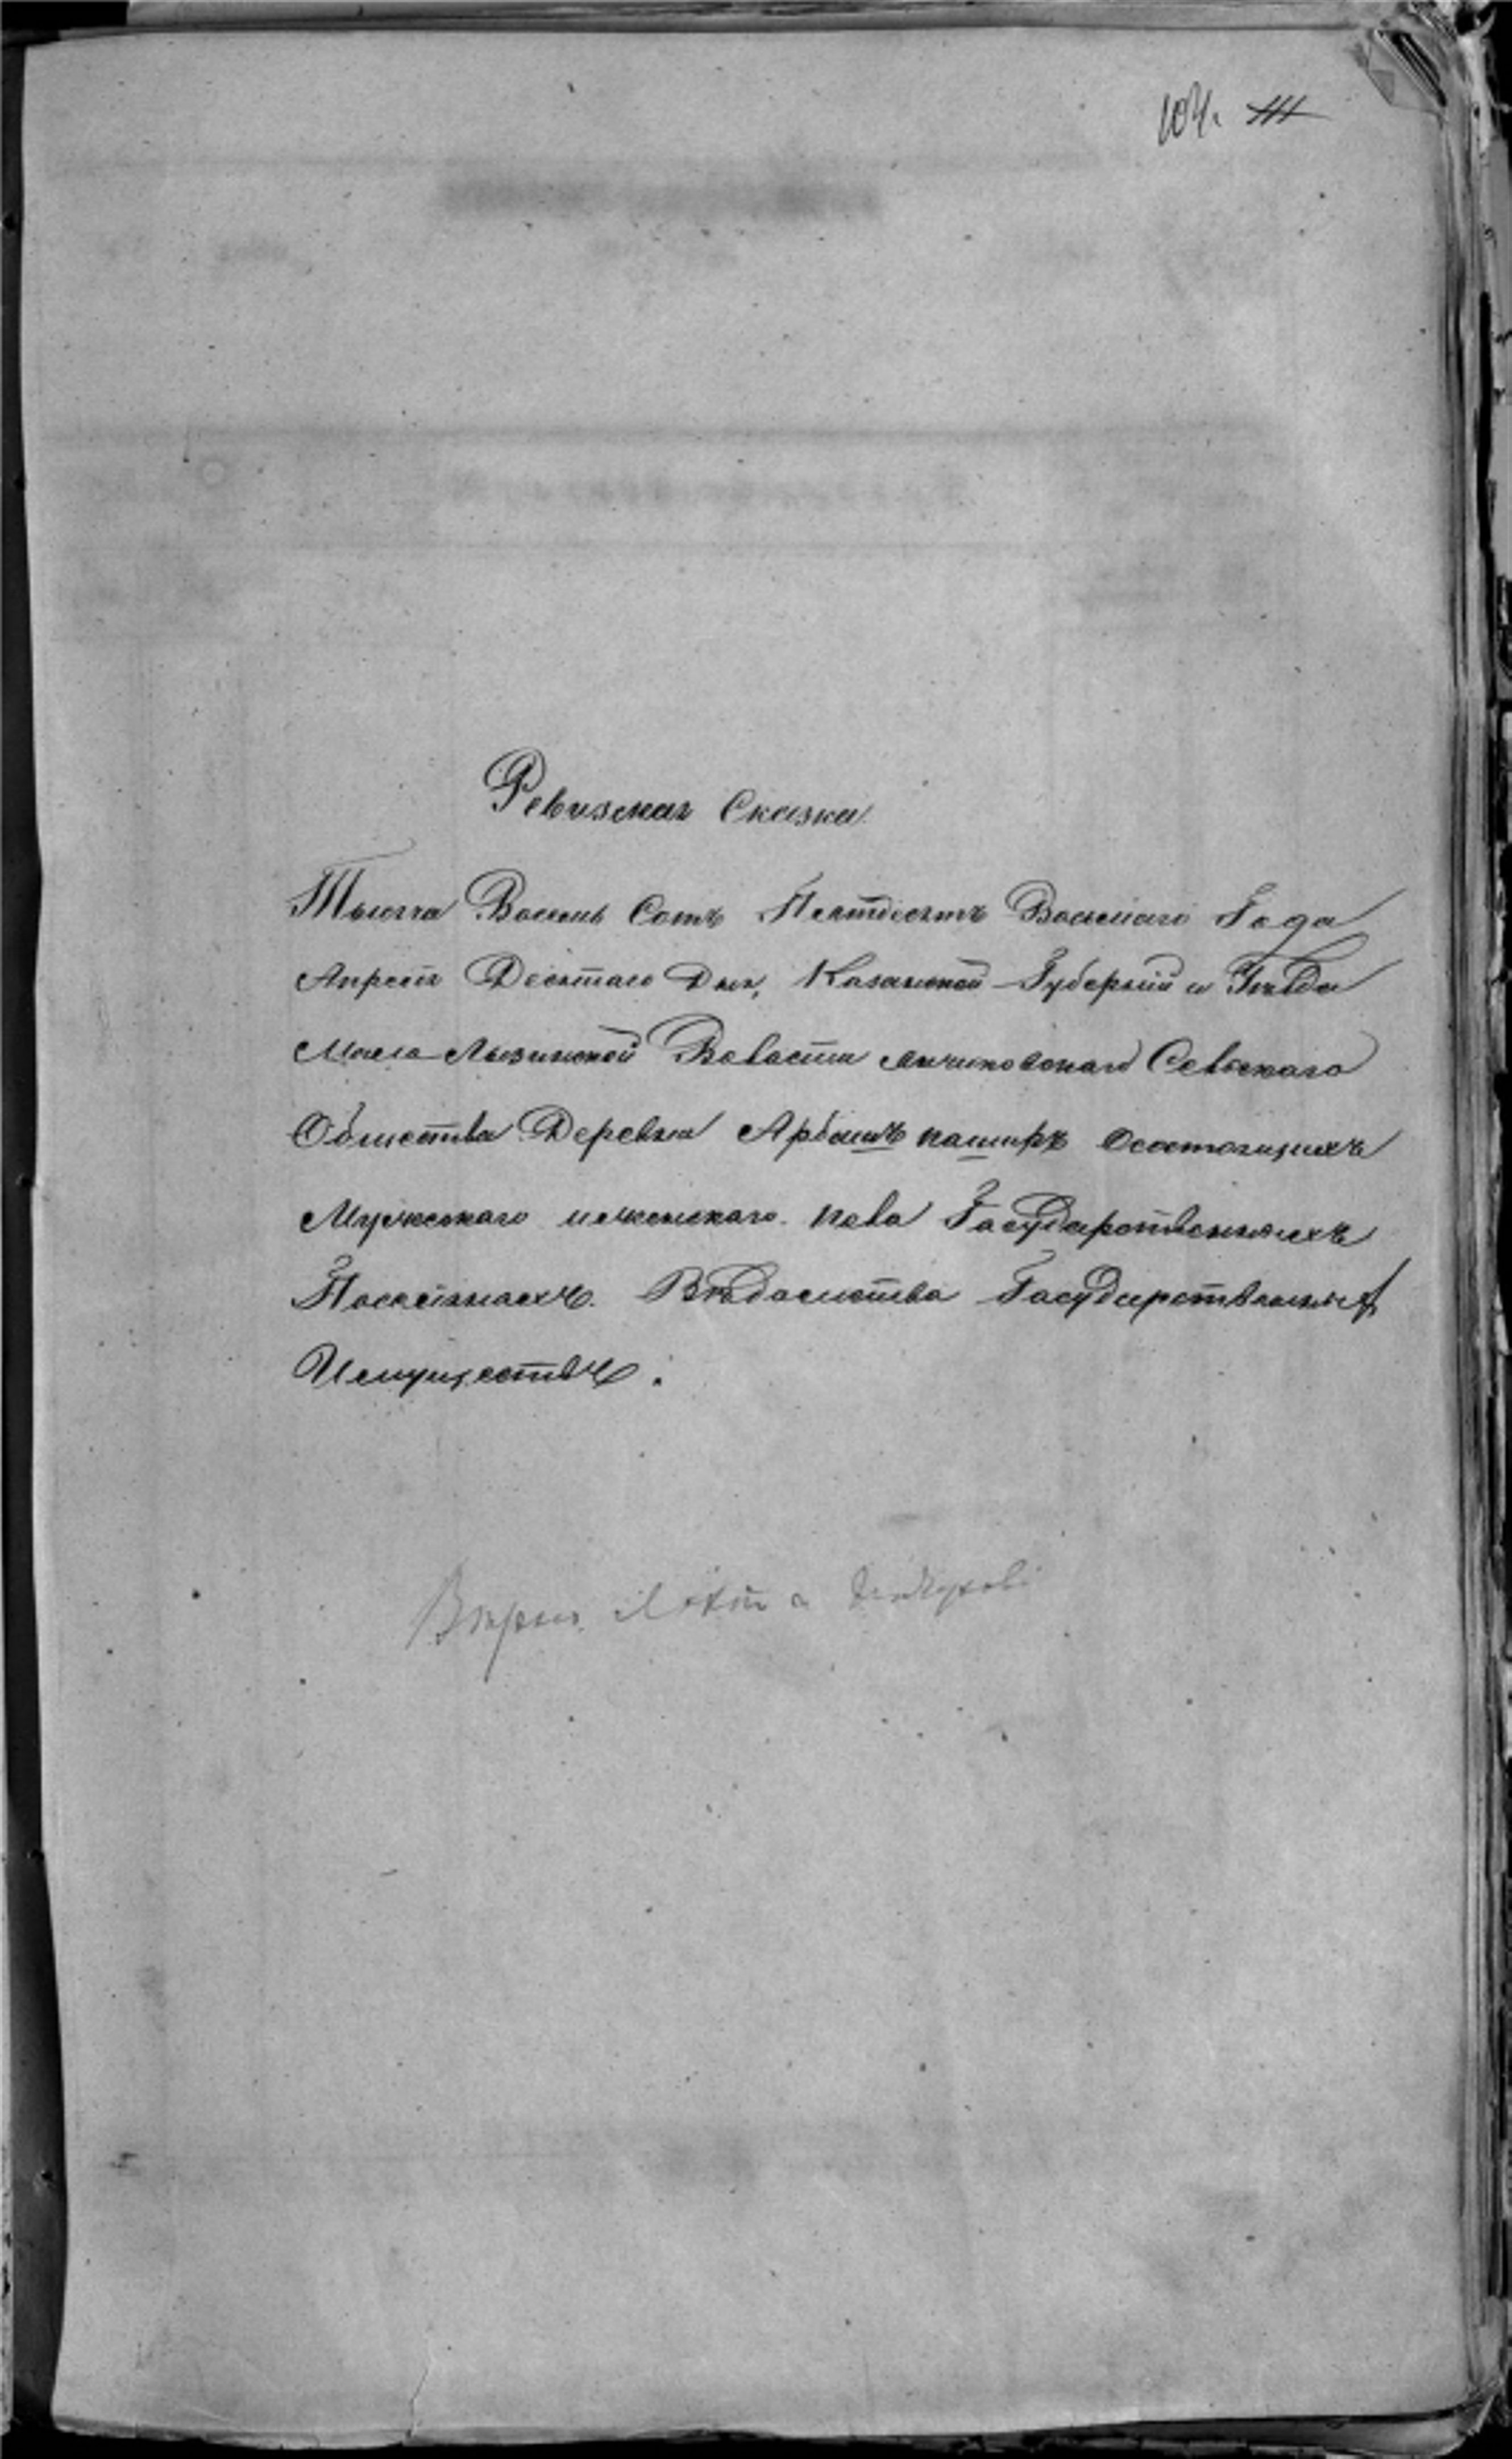 104. 111
Ревизская Сказка
Тысяча Восемь Сотъ Пятдесятъ Восьмаго Года
Апреля Десятаго Дня, Казанской Губерніи и Уѣзда
Мало-Лызинской Воласти Сельскаго
Общества Деревни Арбашъ осостоящихъ
Мужескаго иженскаго пола Государственныхъ
Поселянахъ. Вѣдомства Государственныхъ
Имуществъ.